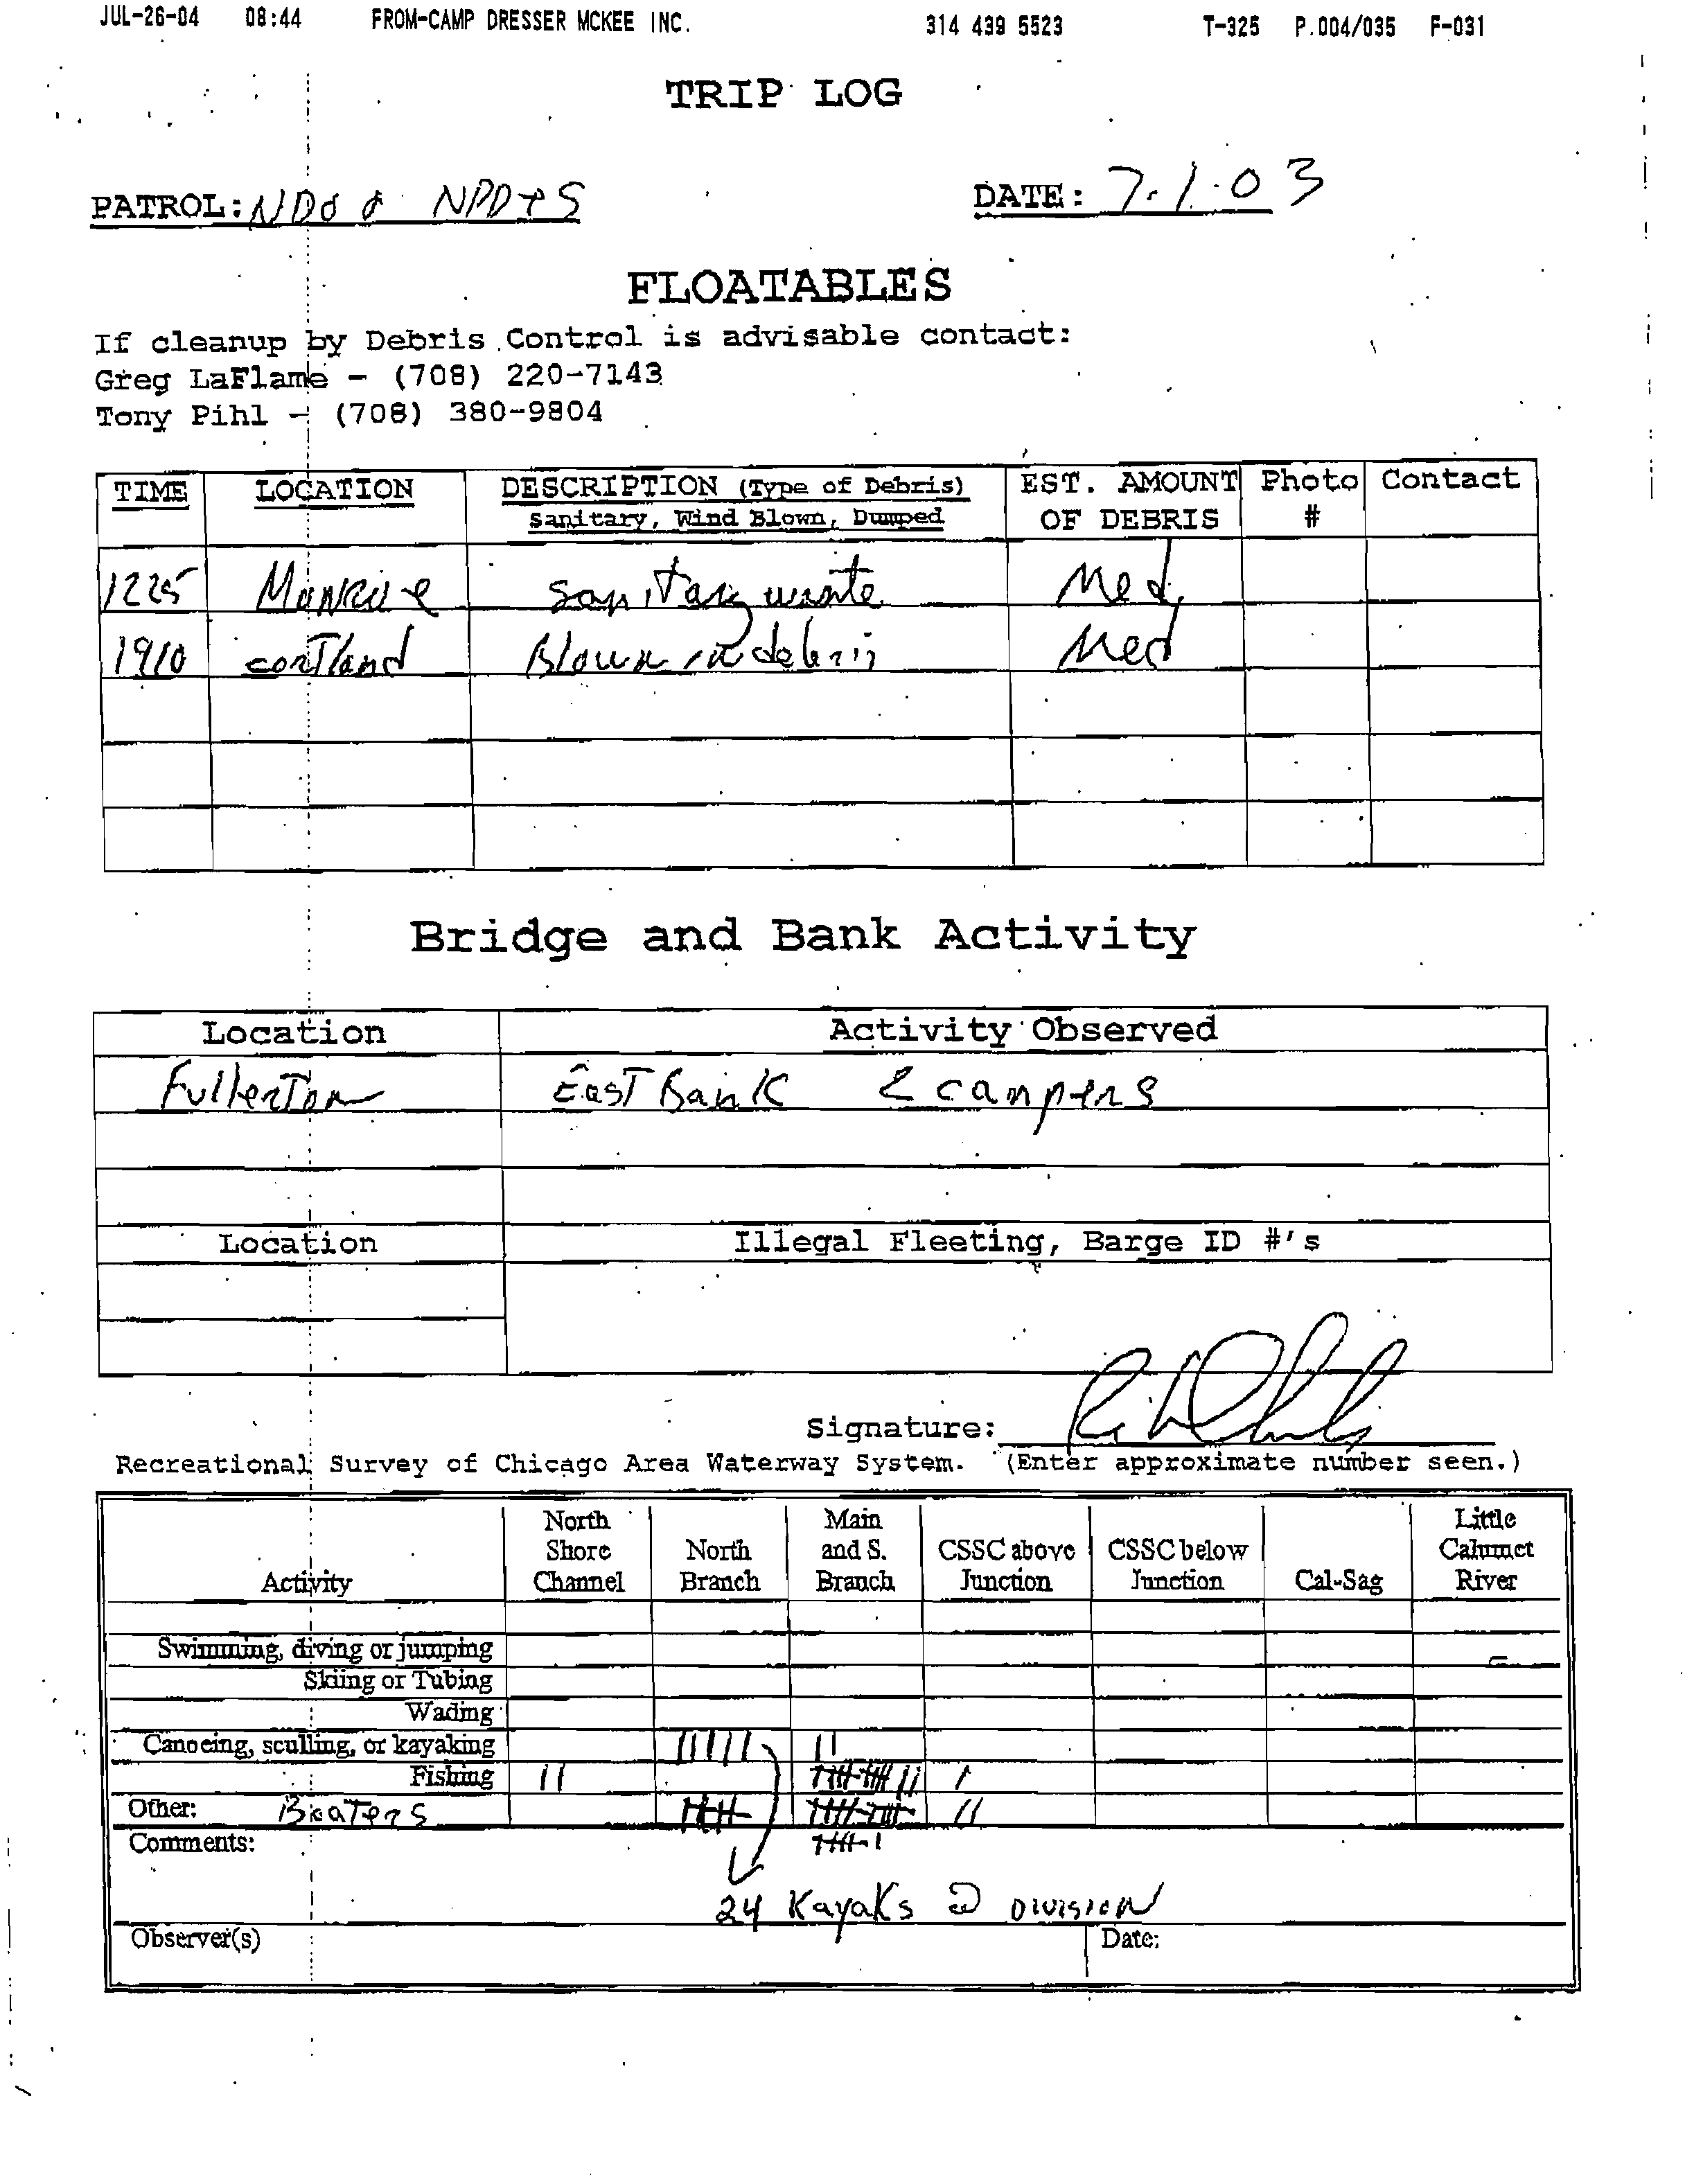 JUL-26-04 08:44 FROM-CAMP DRESSER MCKEE INC. 314 439 5523 T-325 P.004/035 F-031
TRIP LOG
PATROL: NPD+S DATE: 7.1.03
FLOATABLES
If cleanup by Debris Control is advisable contact:
Greg LaFlame - (708) 220-7143
Tony Pihl - (708) 380-9804
TIME LOCATION DESCRIPTION (Type of Debris) EST. AMOUNT Photo Contact
Sanitary, Wind Blown, Dumped OF DEBRIS #
1225 Monroe sanitary waste Med,
1910 cortland Blown in debris Med
Bridge and Bank Activity
Location Activity Observed
Fullerton East Bank 2 campers
Location Illegal Fleeting, Barge ID #'s
Signature:
Recreational Survey of Chicago Area Waterway System. (Enter approximate number seen.)
North Main Little
Shore North and S. CSSC above CSSC below Calumet
Activity Channel Branch Branch Junction Junction Cal-Sag River
Swimming, diving or jumping
Skiing or Tubing
Wading
Canoeing, sculling, or kayaking
Fishing
Other: Boaters
Comments:
24 Kayaks @ DIVISION
Observer(s) Date: